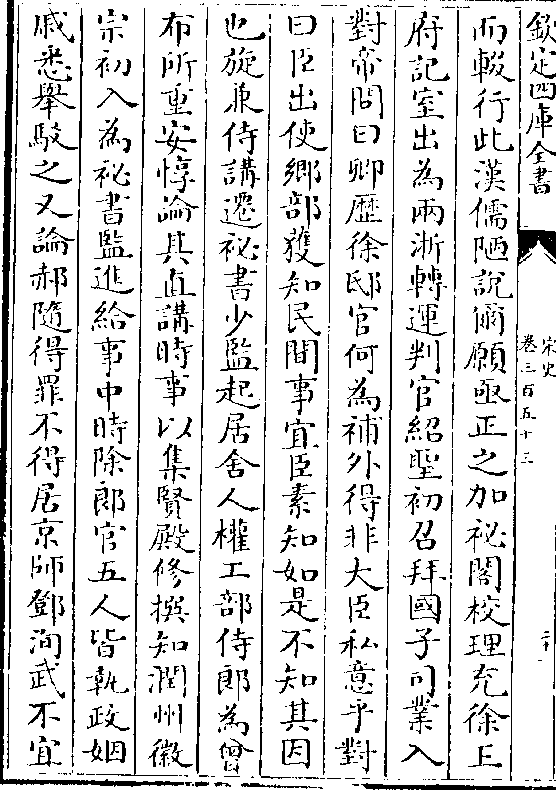 欽定四庫全書
宋史
卷三百五十三
而輟行此漢儒陋說爾願亟正之加祕閣校理充徐王
府記室出為兩浙轉運判官紹聖初召拜國子司業入
對帝問曰卿歴徐邸官何為補外得非大臣私意乎對
曰臣出使鄉部獲知民間事宜臣素知如是不知其因
也旋兼侍講遷祕書少監起居舍人權工部侍郎為曾
布所重安惇論其直講時事以集賢殿修撰知潤州徽
宗初入為祕書監進給事中時除郎官五人皆執政姻
戚悉舉駮之又論郝隨得罪不得居京師鄧洵武不宜